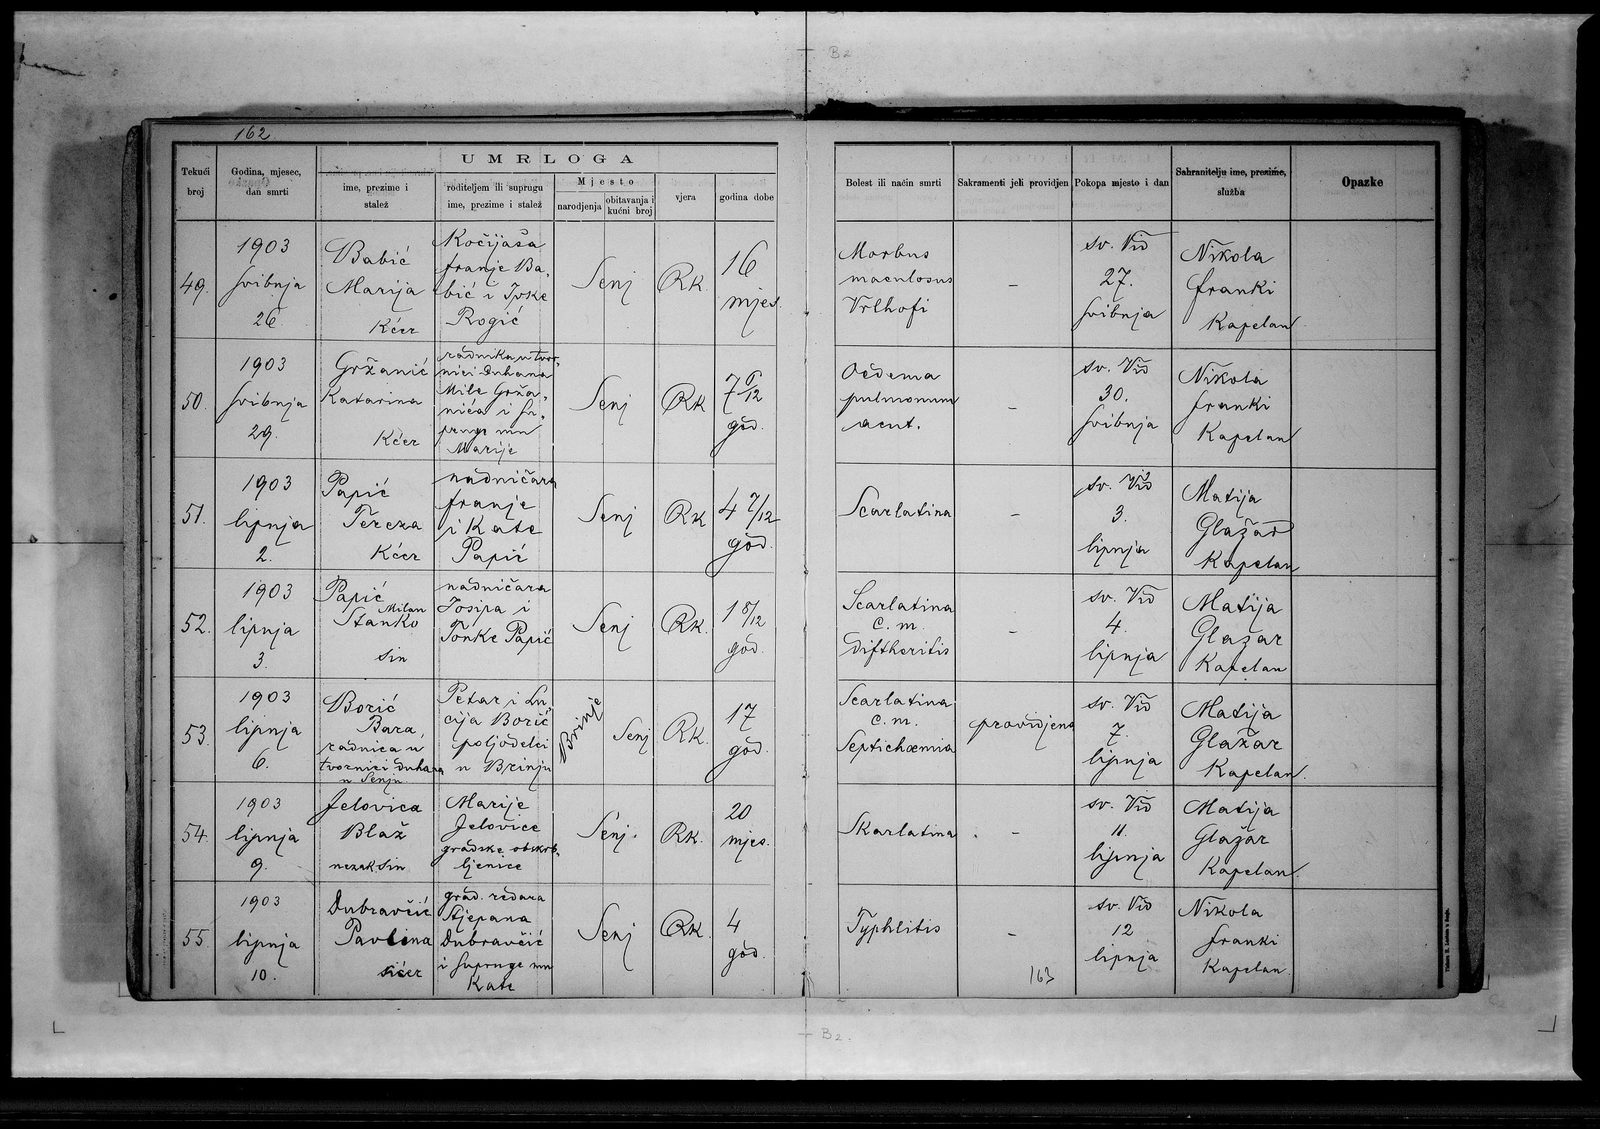 B2
162
UMRLOGA
Tekući broj
Godina, mjesec, dan smrti
ime, prezime i stalež
roditeljem ili suprugu ime, prezime i stalež
Mjesto
narodjenja
obitavanja i kućni broj
vjera
godina dobe
Bolest ili način smrti
Sakramenti jeli providjen
Pokopa mjesto i dan
Sahranitelju ime, prezime, služba
Opazke
49.
1903
svibnja
26.
Babić
Marija
Kćer
Kočijaša
franje Ba-
bić i Ivke
Rogić
Senj
RK.
16
mjes.
Morbus
maculosus
Vrlhofi
-
sv. Vid
27.
svibnja
Nikola
franki
Kapelan
50.
1903
svibnja
29.
Gržanić
Katarina
Kćer
radnika u tvor-
nici duhana
Mile Grža-
nića i su-
pruge mu
Marije
Senj
RK
7 6/12
god.
Oedema
pulmonum
acut.
-
sv. Vid
30.
svibnja
Nikola
franki
Kapelan
51.
1903
lipnja
2.
Papić
Tereza
Kćer
nadničara
franje
i Kate
Papić
Senj
RK
4 7/12
god.
Scarlatina
-
sv. Vid
3.
lipnja
Matija
Glažar
Kapelan
52.
1903
lipnja
3.
Papić
Milan
Stanko
sin
nadničara
Josipa i
Tonke Papić
Senj
RK.
1 8/12
god.
Scarlatina
c. m.
Diftheritis
-
sv. Vid
4.
lipnja
Matija
Glažar
Kapelan
53.
1903
lipnja
6.
Borić
Bara
radnica u
tvornici duhana
u Senju
Petar i Lu-
cija Borić
poljodelci
u Brinju
Brinje
Senj
RK.
17
god.
Scarlatina
c. m.
Septichæmia
providjena
sv. Vid
7.
lipnja
Matija
Glažar
Kapelan.
54.
1903
lipnja
9.
Jelovica
Blaž
nezak sin
Marije
Jelovice
gradske obskrb-
ljenice
Senj.
RK.
20
mjes.
Skarlatina.
-
sv. Vid
11.
lipnja
Matija
Glažar
Kapelan
55.
1903
lipnja
10.
Dubravčić
Pavlina
kćer
grad. redara
Stjepana
Dubravčić
i supruge mu
Kate
Senj
RK.
4
god.
Typhlitis
-
sv. Vid
12
lipnja
Nikola
franki
Kapelan.
163
B2.
C2